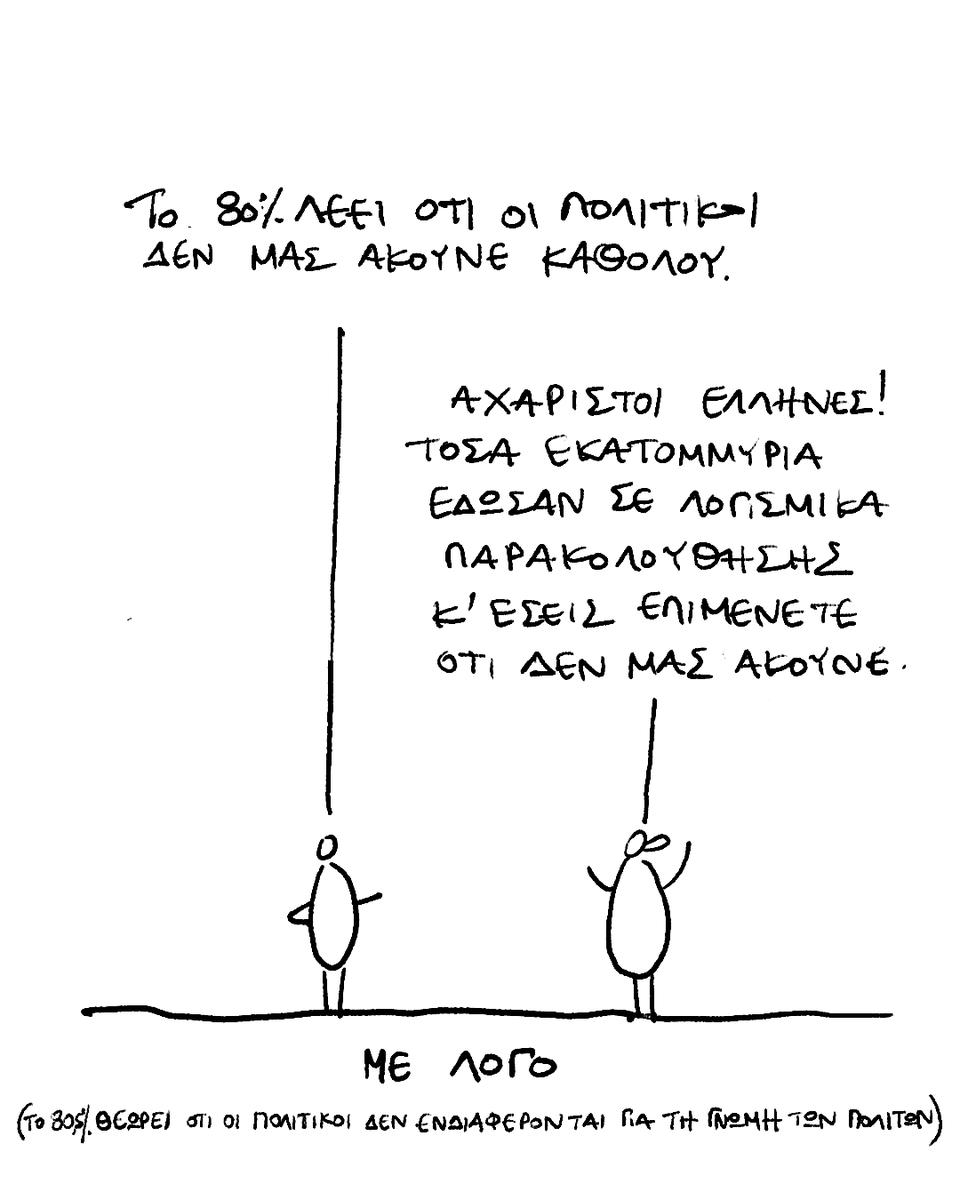 Το 80% ΛΕΕΙ ΟΤΙ ΟΙ ΠΟΛΙΤΙΚΟΙ
ΔΕΝ ΜΑΣ ΑΚΟΥΝΕ ΚΑΘΟΛΟΥ.
ΑΧΑΡΙΣΤΟΙ ΕΛΛΗΝΕΣ!
ΤΟΣΑ ΕΚΑΤΟΜΜΥΡΙΑ
ΕΔΩΣΑΝ ΣΕ ΛΟΓΙΣΜΙΚΑ
ΠΑΡΑΚΟΛΟΥΘΗΣΗΣ
Κ' ΕΣΕΙΣ ΕΠΙΜΕΝΕΤΕ
ΟΤΙ ΔΕΝ ΜΑΣ ΑΚΟΥΝΕ.
ΜΕ ΛΟΓΟ
(Το 80,5% ΘΕΩΡΕΙ ΟΤΙ ΟΙ ΠΟΛΙΤΙΚΟΙ ΔΕΝ ΕΝΔΙΑΦΕΡΟΝΤΑΙ ΓΙΑ ΤΗ ΓΝΩΜΗ ΤΩΝ ΠΟΛΙΤΩΝ)